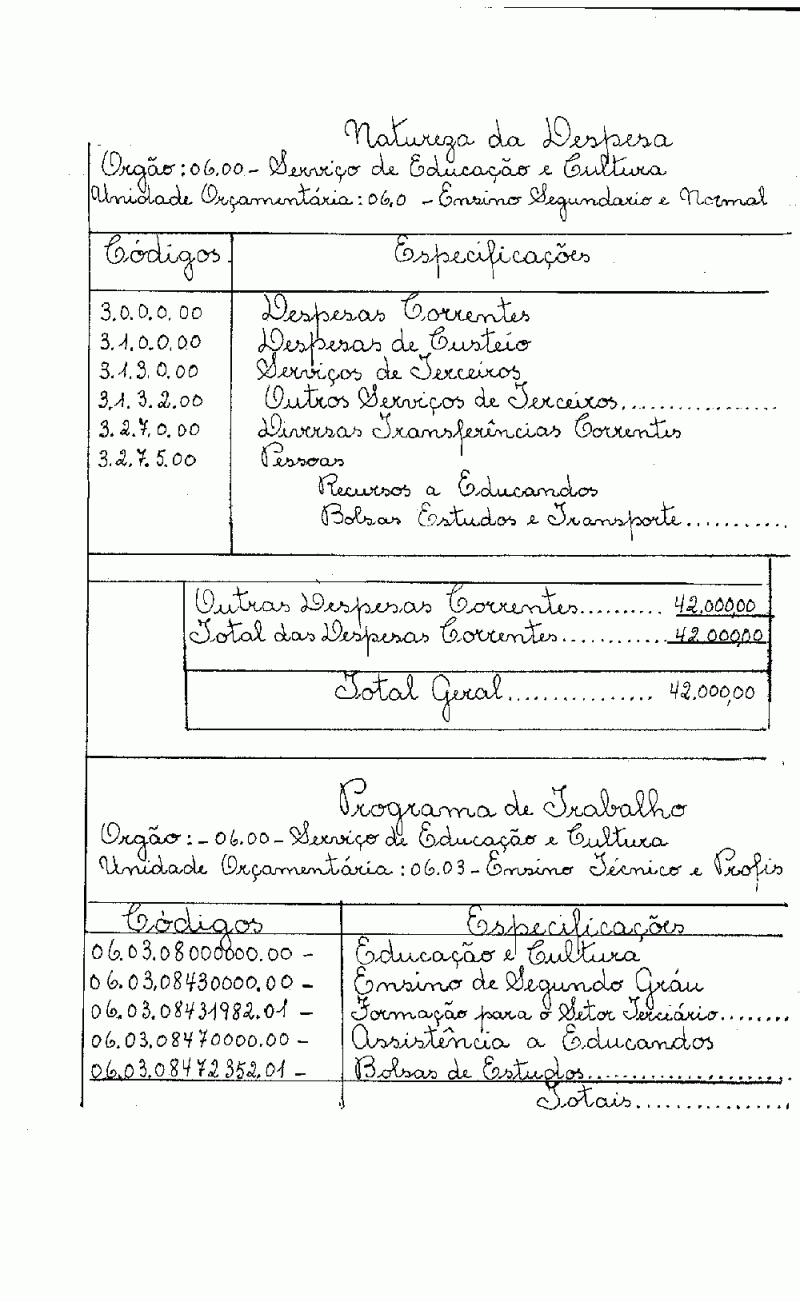 Natureza da Despesa
Orgão: 06.00 - Serviço de Educação e Cultura
Unidade Orçamentária: 06,0 - Ensino Segundario e Normal
Códigos Especificações
3.0.0.0.00 Despesas Correntes
3.1.0.0.00 Despesas de Custeio
3.1.3.0.00 Serviços de Terceiros
3.1.3.2.00 Outros Serviços de Terceiros.................
3.2.7.0.00 Diversas Transferências Correntes
3.2.7.5.00 Pessoas
Recursos a Educandos
Bolsas Estudos e Transporte...........
Outras Despesas Correntes.......... 42.000,00
Total das Despesas Correntes............ 42.000,00
Total Geral................ 42.000,00
Programa de Trabalho
Orgão: - 06.00 - Serviço de Educação e Cultura
Unidade Orçamentária: 06.03 - Ensino Técnico e Profis
Códigos Especificações
06.03.08000000.00 - Educação e Cultura
06.03.08430000.00 - Ensino de Segundo Gráu
06.03.08431982.01 - Formação para o Setor Terciário........
06.03.08470000.00 - Assistência a Educandos
06.03.08472352.01 - Bolsas de Estudos......................
Totais.................